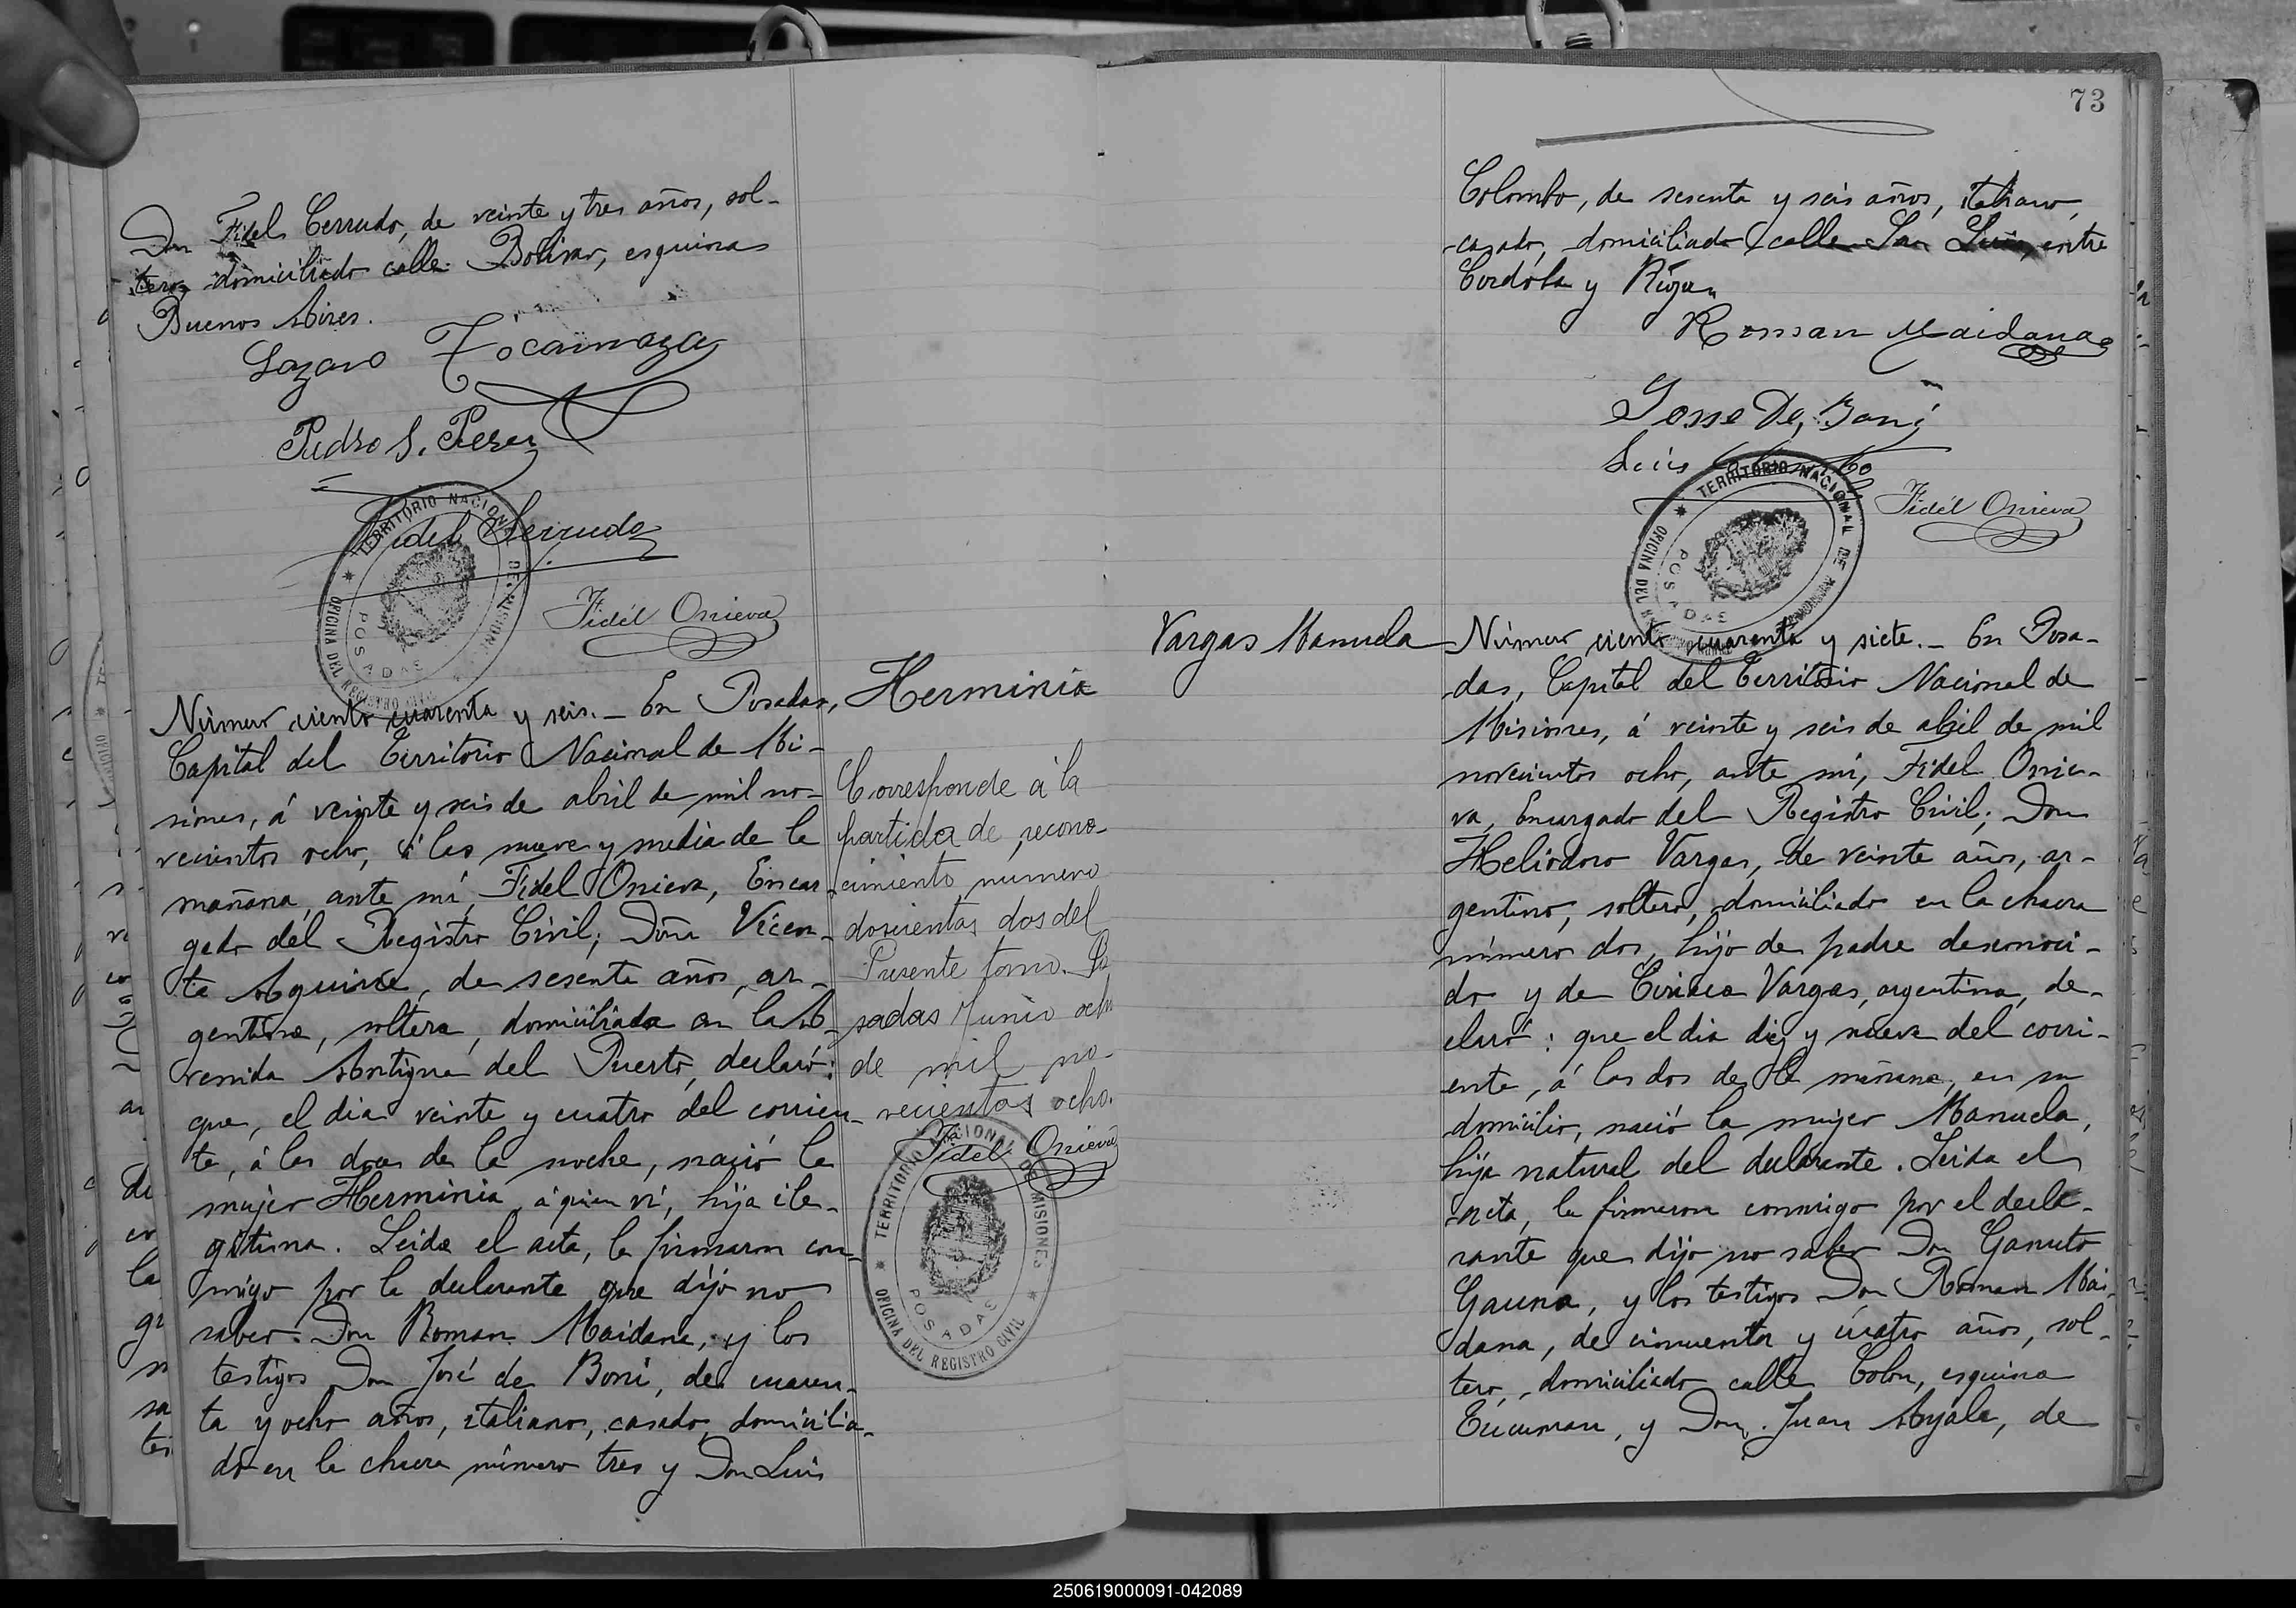 Don Fidel Cerrudo, de veinte y tres años, sol-
tero, domiciliado calle Bolivar, esquina
Buenos Aires.
Lazaro
Pedro S. Perez
Fidel Serrudo
TERRITORIO NACIONAL DE MISIONES
OFICINA DEL REGISTRO CIVIL
POSADAS
Fidél Onieva
Número ciento cuarenta y seis._ En Posadas,
Capital del Territorio Nacional de Mi-
siones, á veinte y seis de abril de mil no-
vecientos ocho, á las nueve y media de la
mañana, ante mí, Fidel Onieva, Encar-
gado del Registro Civil; Doña Vicen-
ta Aguirre, de sesenta años, ar-
gentina, soltera, domiciliada en la A-
venida Antigua del Puerto, declaró:
que, el dia veinte y cuatro del corrien-
te, á las doce de la noche, nació la
mujer Herminia, á quien ví, hija ile-
gítima. Leida el acta, la firmaron con-
migo por la declarante que dijo no
saber. Don Roman Maidana, y los
testigos Don José de Boni, de cuaren-
ta y ocho años, italiano, casado, domicilia-
do en la chacra número tres y Don Luis
Herminia
Corresponde á la
partida de recono-
cimiento numero
doscientas dos del
Presente tomo. Po
sadas Junio ocho
de mil no-
vecientos ocho.
Fidel Onieva
TERRITORIO NACIONAL DE MISIONES
OFICINA DEL REGISTRO CIVIL
POSADAS
73
Colombo, de sesenta y seis años, italiano,
casado, domiciliado calle San Luis, entre
Cordóba y Rioja.
Roman Maidana
Josse De Boni
Luis Colombo
TERRITORIO NACIONAL DE MISIONES
OFICINA DEL REGISTRO CIVIL
POSADAS
Fidél Onieva
Vargas Manuela
Número ciento cuarenta y siete._ En Posa-
das, Capital del Territorio Nacional de
Misiones, á veinte y seis de abril de mil
novecientos ocho, ante mí, Fidel Onie-
va, Encargado del Registro Civil; Don
Heliodoro Vargas, de veinte años, ar-
gentino, soltero, domiciliado en la chacra
número dos, hijo de padre desconoci-
do y de Ciriaca Vargas, argentina, de-
claró: que el dia diez y nueve del corri-
ente, á las dos de la mañana, en su
domicilio, nació la mujer Manuela,
hija natural del declarante. Leida el
acta, la firmaron conmigo por el decla-
rante que dijo no saber Don Ganuto
Gauna, y los testigos Don Roman Mai-
dana, de cincuenta y cuatro años, sol-
tero, domiciliado calle Colon, esquina
Tucuman, y Don Juan Ayala, de
250619000091-042089